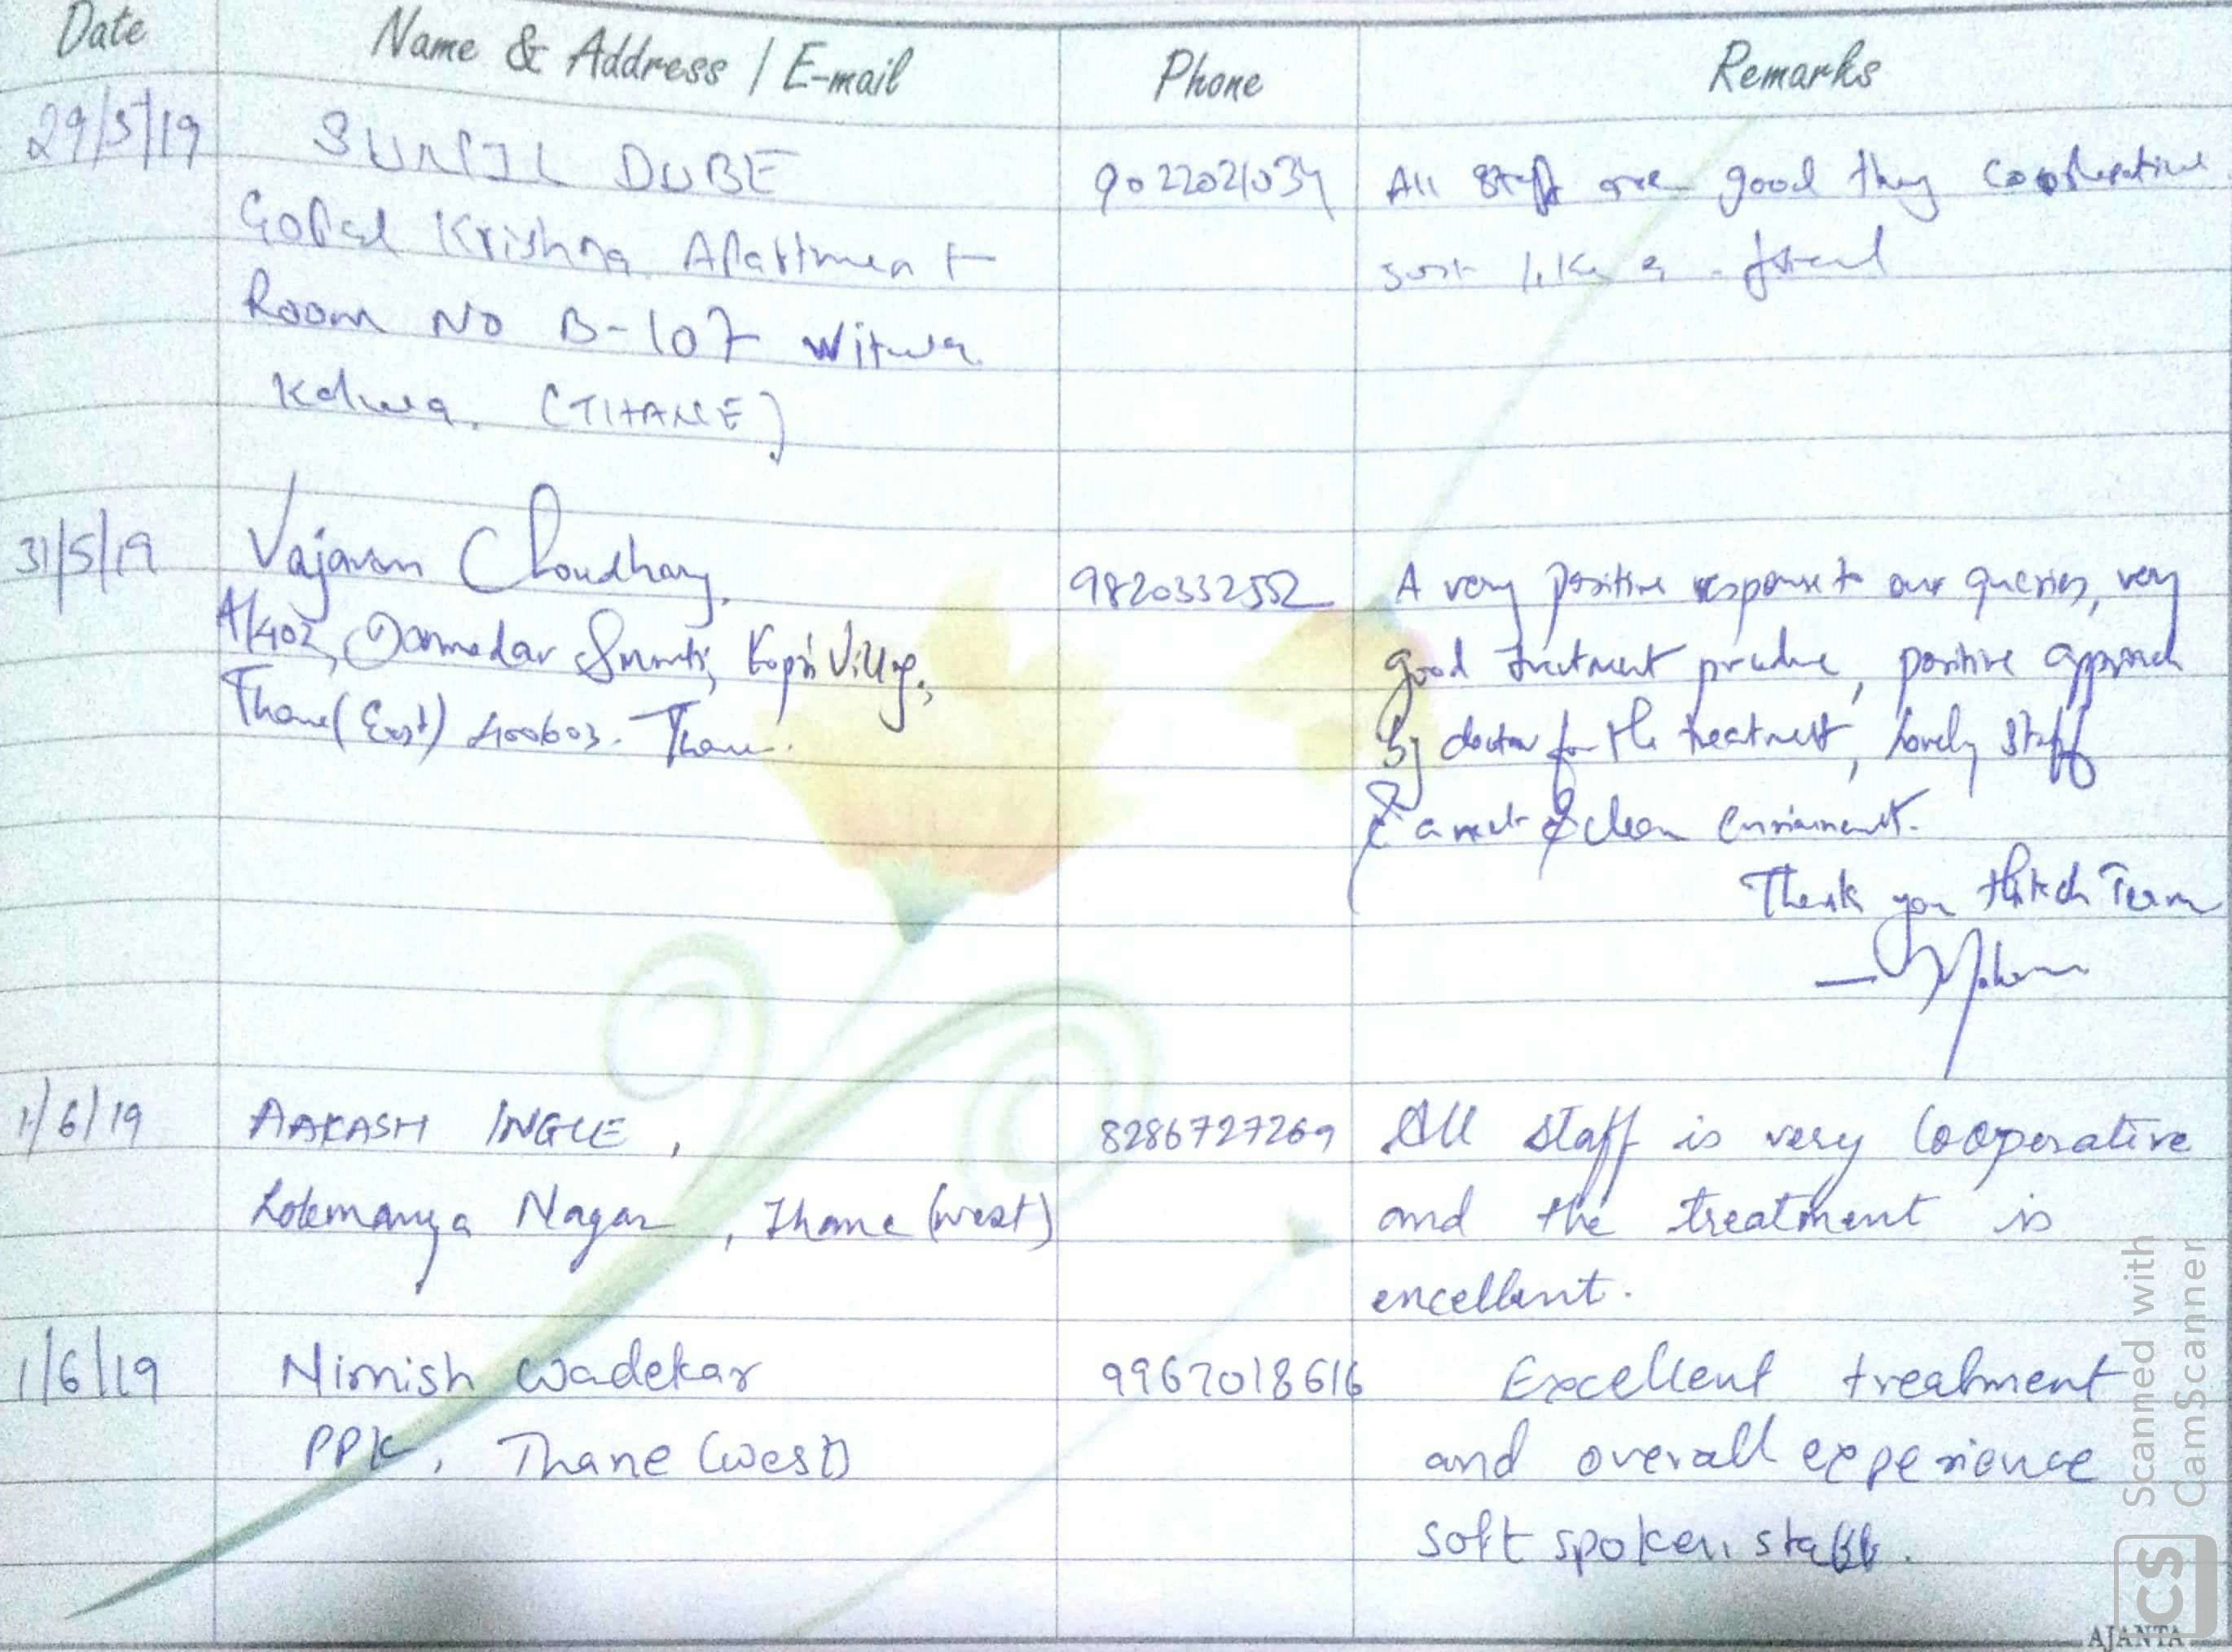 Date Name & Address / E-mail Phone Remarks
29/5/19 SUNIL DUBE 9022021034 All staff are good they cooperative
Gopal Krishna Apartment Just like a friend
Room No B-107 Witwa
Kalwa. (THANE)
31/5/19 Vajaram Choudhary, 9820332552 A very positive response to our queries, very
A/402, Damodar Smruti, Kopri Village, good treatment, positive approach
Thane (East) 400603. Thane. By doctor for the treatment, lovely staff
& a neat & clean environment.
Thank you Team
1/6/19 AAKASH INGLE, 8286727269 All staff is very Cooperative
Lokmanya Nagar, Thane (west) and the treatment is
excellent.
1/6/19 Nimish Wadekar 9967018616 Excellent treatment
PPK, Thane (west) and overall experience
soft spoken staff.
Scanned with
CamScanner
CS
AJANTA